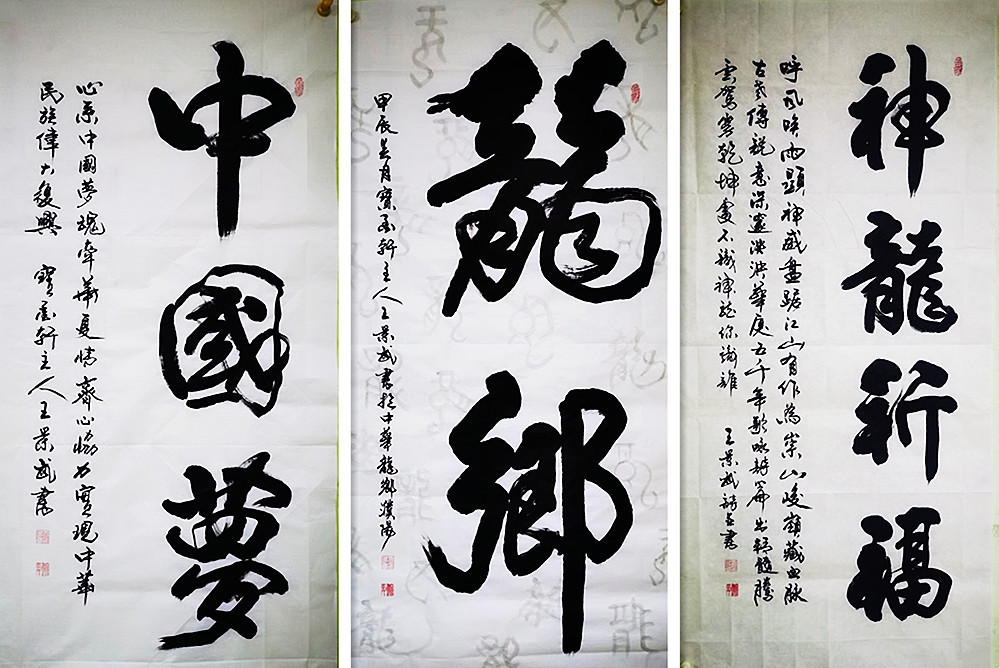 中國夢
心系中國夢魂牽華夏情齊心協力實現中華
民族偉大復興 寶軒主人王景武書
龍鄉
甲辰月寶軒主人王景武書於中華龍鄉濮陽
神龍祈福
呼风唤雨顯神威盤踞江山有作為崇山峻嶺藏血脉
古老傳說意深邃泱泱華夏五千年歌咏詩篇出精髓騰
雲駕霧乾坤變不識神龍你識誰 王景武詩并書